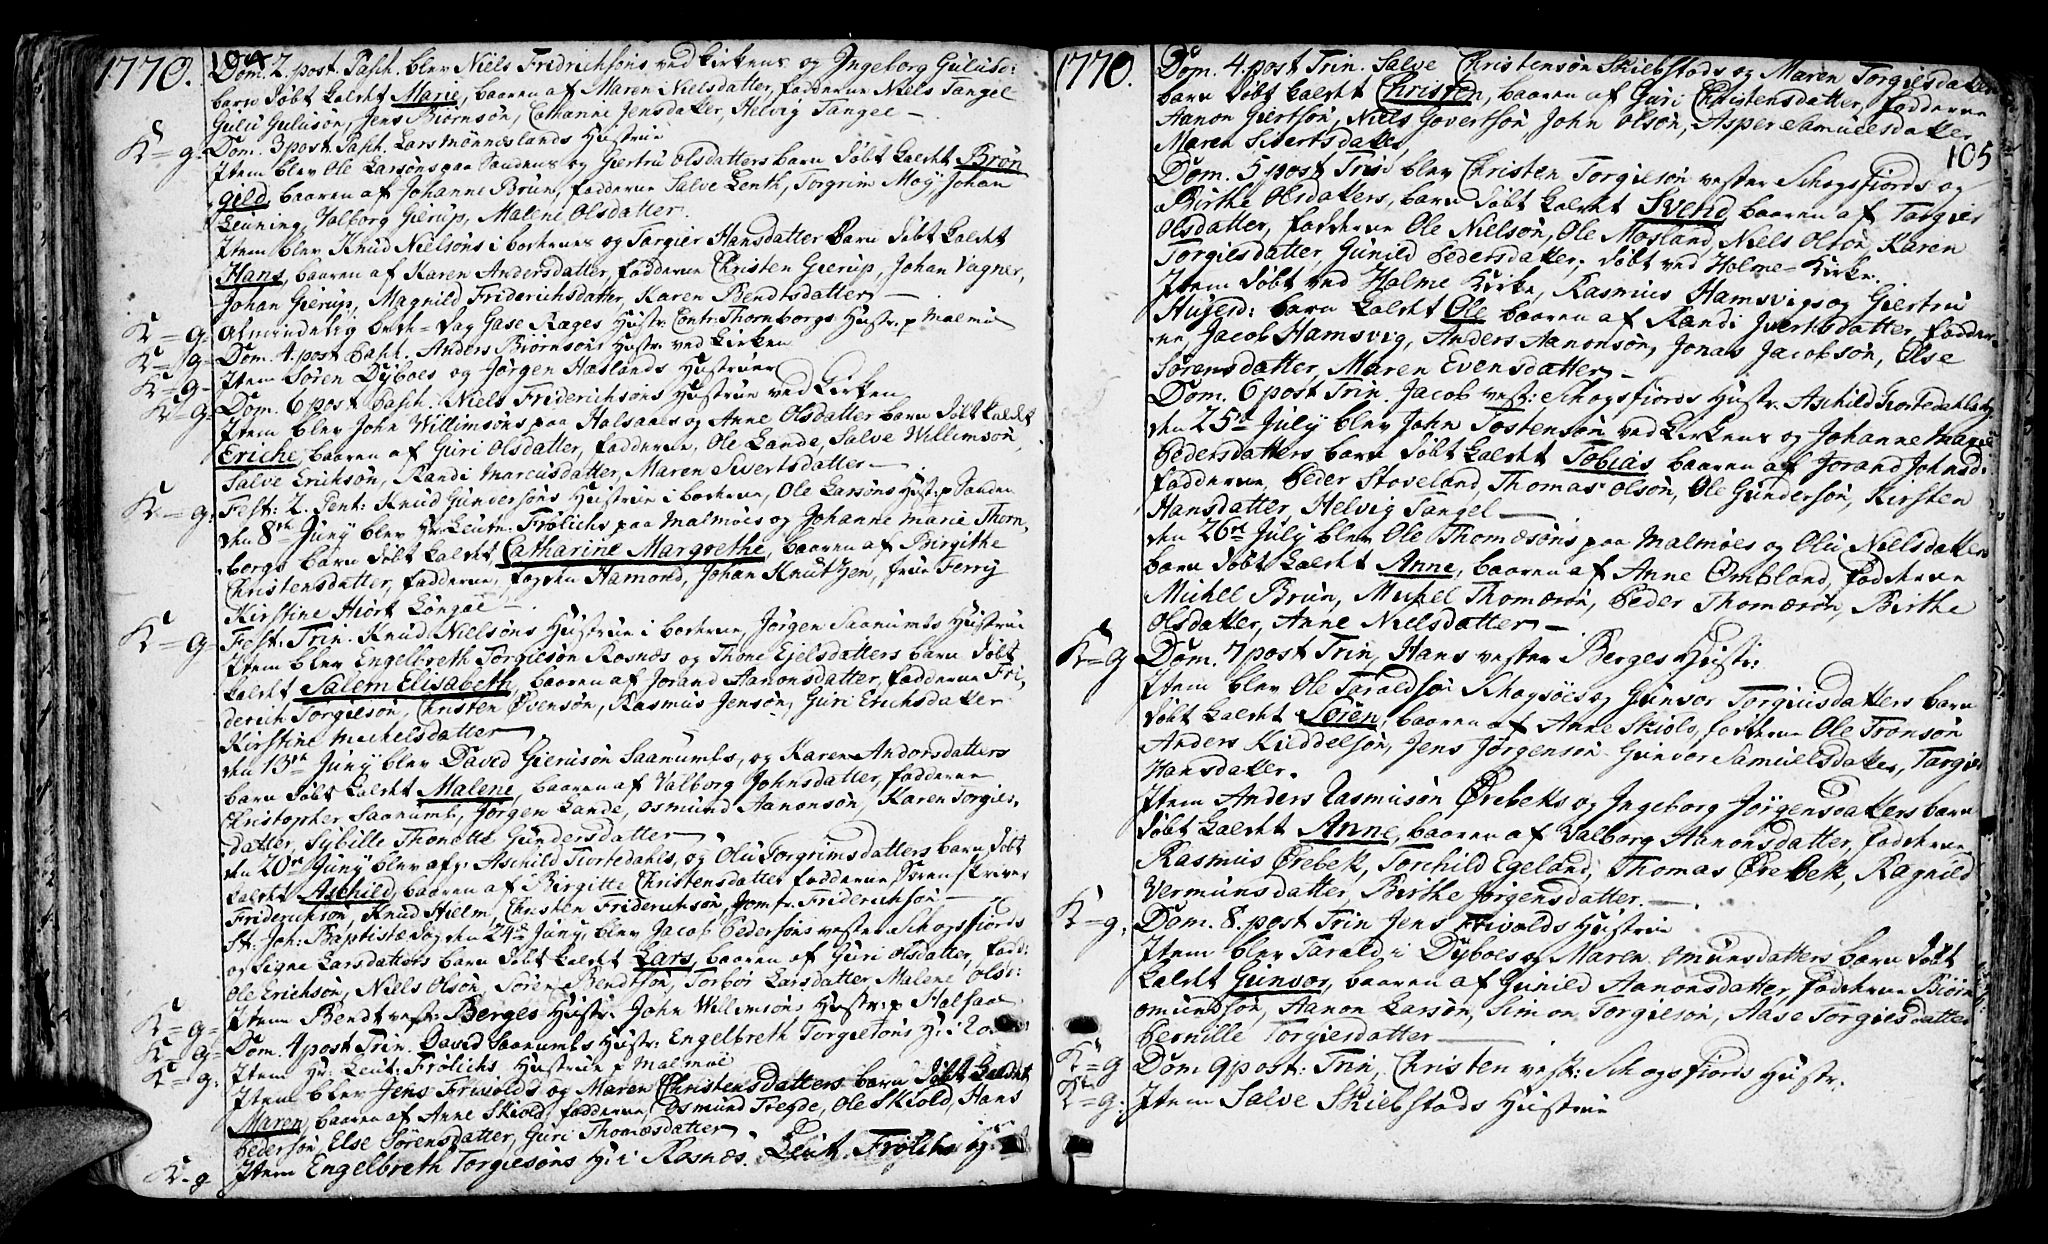 1770.
104
Dom. 2. post. Pasch. blev Niels Fridrichsøns ved kirkens og Ingeborg Gulusd:
barn døbt kaldet Marie, baaren af Maren Nielsdatter, fadderne Niels Tangel
Gulu Guluson, Jens Biörnsøn, Cathanne Jensdatter, Helvig Tangel —
K = g. Dom. 3 post. Pasch. Lars Mønneslands Hustrue
Item blev Ole Larsøns paa Sandnes og Giertru Olsdatters barn døbt kaldet Brøn
gild, baaren af Johanne Brun, fadderne Salve Lenth, Torgrim Moy, Johan
Leuning, Valborg Gierup, Malene Olsdatter.
Item blev Knud Nielsøns i borkenes og Torgier Hansdatter barn døbt kaldet
Hans, baaren af Karen Andersdatter, fadderne Christen Gierup, Johan Vagner,
Johan Gierup, Magnild Friderichsdatter, Karen Bendtsdatter —
K = g. Almindelig bede-dag Gase Rages Hustr. Contr. Thornborgs Hustr. p Malmø
K = g. Dom. 4. post Pasch. Anders Biörnsøns Hustr. ved kirken
K = g. Item Søren Dyboes og Jørgen Haslands Hustruer
K = g. Dom. 6 post Pasch. Niels Friderichsøns Hustrue ved kirken
Item blev John Willimsøns paa Halsaaes og Anne Olsdatter barn døbt kaldet
Eriche, baaren af Guri Olsdatter, fadderne, Ole Lande, Salve Willimsøn,
Salve Erichsøn, Randi Marcusdatter, Maren Sivertsdatter —
K = g. Fest: 2. Pent: Knud Gunversøns Hustrue i borkene, Ole Larsøns Hust: p Sanden
den 8de Juny blev Hr. Leutn. Frølichs paa Malmøes og Johanne Marie Thorn,
borgs barn døbt kaldet Catharine Margrethe, baaren af Birgithe
Christensdatter, fadderne, fogden Hamond, Johan Knutzen, frue Ferry
Kirstine Hiort Longae —
K = g Fest: Trin. Knud Nielsøns Hustrue i borkene, Jørgen Saanumbs Hustrue
Item blev Engelbreth Torgiesøn Rosnæs og Thone Ejelsdatters barn døbt
kaldet Salem Elisabeth, baaren af Jorand Aanonsdatter, fadderne Fri,
derich Torgiesøn, Christen Ovensøn, Rasmus Jensøn, Guri Erichsdatter
Kirstine Michelsdatter
den 13de Juny blev David Gierusøn Saanumbs, og Karen Andorsdatters
barn døbt kaldet Malene, baaren af Valborg Johnsdatter, fadderne
Christopher Saanumb, Jørgen Lande, Osmund Aanonsøn, Karen Torgies,
datter, Sybille Thonette Gundersdatter
den 20de Juny blev afg: Aschild Tiortedahls, og Olu Torgrimsdatters barn døbt
kaldet Aschild, baaren af Birgitte Christensdatter fadderne, Sorenskriver
Friderichsøn, Knud Hielm, Christen Friderichsøn, Jomfr. Friderichsøn. —
St: Joh: Baptistæ dag den 24de Juny, blev Jacob Pedersøns vester Schogsfiords
og Signe Larsdatters barn døbt kaldet Lars, baaren af Guri Olsdatter, fadd:
Ole Erichsøn, Niels Olsøn, Søren Bendtsøn, Torbør Larsdatter, Malene Olsd:
K = g. Item Bendt vest: Berges Hustr. John Willimsøns Hustr: p Halsaa
K = g. Dom. 4 post Trin. David Saanumbs Hustr: Engelbreth Torgiesøns H: i Ros
K = g. Item Hr: Leut: Frølichs Hustrue p Malmøe
Item blev Jens Frivolds og Maren Christensdatters barn døbt kaldet
Maren, baaren af Anne Skiold, fadderne, Osmund Tregde, Ole Skiold, Hans
Pedersøn, Else Sørensdatter, Guri Thomæsdatter
K - g Item Engelbreth Torgiesøns H: i Rosnæs. Leut. Frølichs H:
1770.
Dom. 4. post Trin. Salve Christensøn Skiebstads og Maren Torgiesdatters
barn døbt kaldet Christen, baaren af Guri Christensdatter, fadderne
Aanon Giertsøn, Niels Govertsøn John Olsøn, Asper Samuelsdatter
Maren Sivertsdatter,
105
Dom. 5 post Trin blev Christen Torgiesøn vester Schogsfiords og
Birthe Olsdatters, barn døbt kaldet Svend, baaren af Torgier
Olsdatter, fadderne Ole Nielsøn, Ole Mosland, Niels Olsøn, Karen
Torgiesdatter, Gunild Pedersdatter, døbt ved Holme-Kirke.
Item døbt ved Holme Kirke, Rasmus Hamsvigs og Giertru
Hugesd: barn kaldet Ole baaren af Randi Ivertsdatter, fadder
ne, Jacob Hamsvig, Anders Aanonsøn, Jonas Jacobsøn, Else
Sørensdatter, Maren Evensdatter —
Dom. 6 post Trin. Jacob vest: Schogsfiords Hustr. Aschild Tiortedahls
den 25de July blev John Tostensøn ved kirkens og Johanne Marie
Pedersdatters barn døbt kaldet Tobias, baaren af Jorand Johnsd:
fadderne, Peder Stoveland, Thomas Olsøn, Ole Gundersøn, Kirsten
Hansdatter, Helvig Tangel —
den 26de July blev Ole Thomæsøns paa Malmøes og Olu Nielsdatters
barn døbt kaldet Anne, baaren af Anne Ombland, fadderne
Michel Brun, Michel Thomæsøn, Peder Thomæsøn, Birthe
Olsdatter, Anne Nielsdatter —
K = g Dom. 7 post Trin, Hans vester Berges Hustr:
Item blev Ole Taraldsøn Schogsøes og Gunvor Torgiusdatters barn
døbt kaldet Søren, baaren af Anne Skiold, fadderne Ole Tronsøn
Anders Kieddelsøn, Jens Jørgensøn Gunvor Samuelsdatter, Torgier
Hansdatter.
Item Anders Rasmusøn Ørebeks og Ingeborg Jørgensdatters barn
døbt kaldet Anne, baaren af Valborg Aanonsdatter, fadderne
Rasmus Ørebek, Torchild Egeland, Thomas Ørebek, Ragnild
Vermunsdatter, Birthe Jørgensdatter. —
K = g. Dom. 8. post Trin Jens Frivolds Hustrue
Item blev Tarald i Dyboes og Maren Omundsdatters barn døbt
kaldet Gunvor, baaren af Gunild Aanonsdatter, fadderne Biörn
Omundsøn, Aanon Larsøn, Simon Torgiesøn, Aase Torgiesdatter
Pernille Torgiersdatter —
K = g Dom. 9 post: Trin, Christen vest: Schogsfiords Hustr:
K = g. Item Salve Skiebstads Hustrue